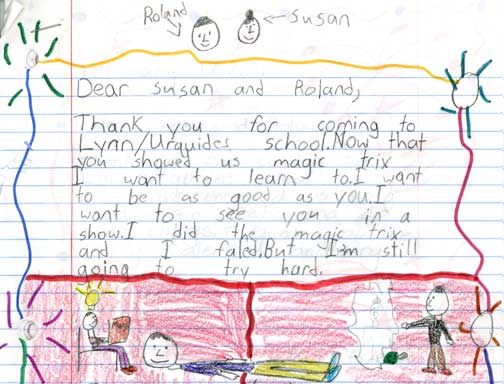 Roland
Susan
Dear Susan and Roland,
Thank you for coming to
Lynn/Urquides school.Now that
you showed us magic trix
I want to learn to.I want
to be as good as you.I
want to see you in a
show.I did the magic trix
and I faled.But I'm still
going to try hard.